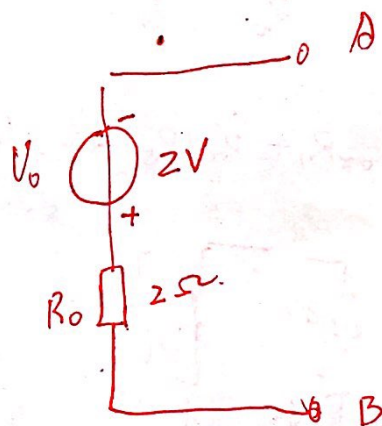 A
-
U₀ 2V
+
R₀ 2Ω.
B